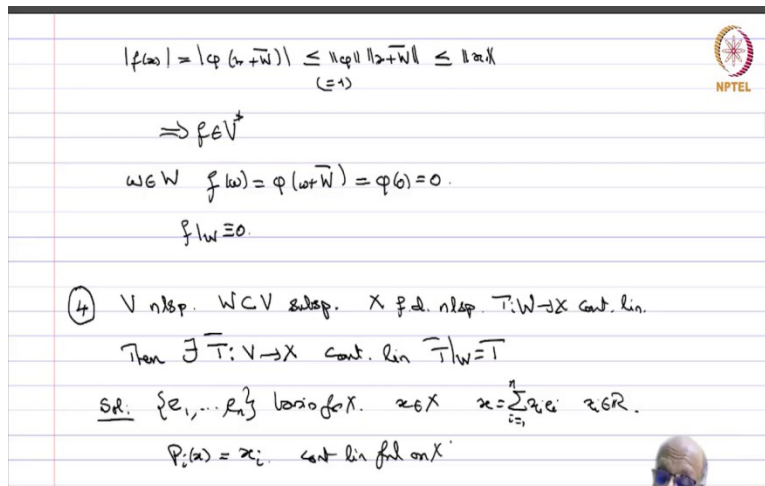 |f(x)| = |φ(x+W̅)| ≤ ‖φ‖ ‖x+W̅‖ ≤ ‖x‖
(=1)
NPTEL
⇒ f∈V*
w∈W f(w) = φ(w+W̅) = φ(0) = 0.
f|w ≡ 0.
④ V nlsp. W⊂V subsp. X f.d. nlsp. T: W→X cont. lin.
Then ∃ T̅: V→X cont. lin T̅|w = T
Sol: {e₁,... eₙ} basis for X. x∈X x = ∑ⁿᵢ₌₁ xᵢeᵢ xᵢ∈ℝ.
Pᵢ(x) = xᵢ. cont lin fnl on X